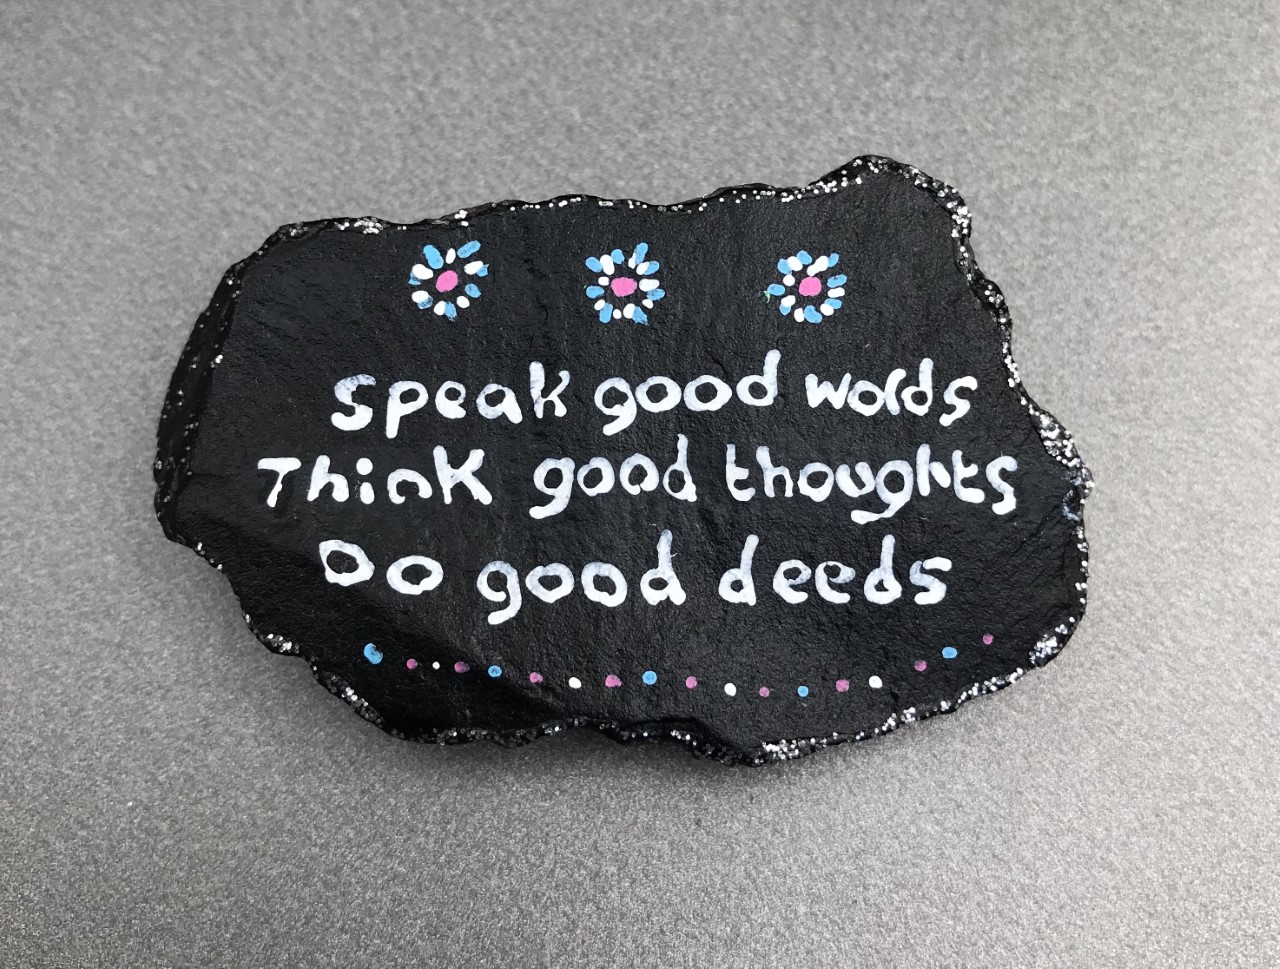 speak good words
Think good thoughts
Do good deeds